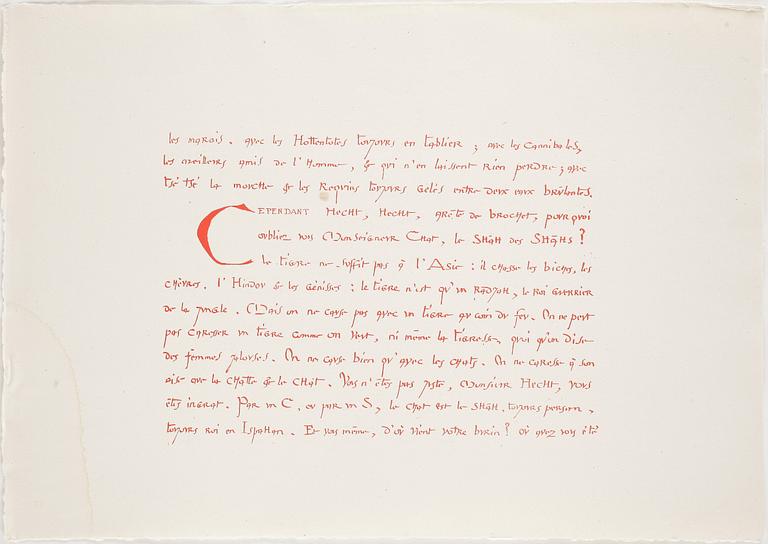 les marais. avec les Hottentotes toujours en tablier ; avec les Cannibales,
les meilleurs amis de l'Homme, & qui n'en laissent rien perdre ; avec
tsé tsé la mouche & les Requins toujours gelés entre deux eaux brûlantes.
CEPENDANT HECHT, HECHT, arête de brochet, pourquoi
oubliez vous Monseigneur Chat, le Shah des Shahs ?
le tigre ne suffit pas à l'Asie : il chasse les biches, les
chèvres. l'Hindou & les Génisses : le tigre n'est qu'un Radjah, le roi guerrier
de la jungle. Mais on ne cause pas avec un tigre au coin du feu. On ne peut
pas caresser un tigre comme on veut, ni même la tigresse, quoi qu'on dise
des femmes jalouses. On ne cause bien qu'avec les chats. On ne caresse à son
aise que la chatte & le chat. Vous n'êtes pas juste, Monsieur Hecht, vous
êtes ingrat. Par un C, ou par un S, le chat est le Shah, toujours persan,
toujours roi en Ispahan. Et vous même, d'où vient votre burin ? où avez vous été